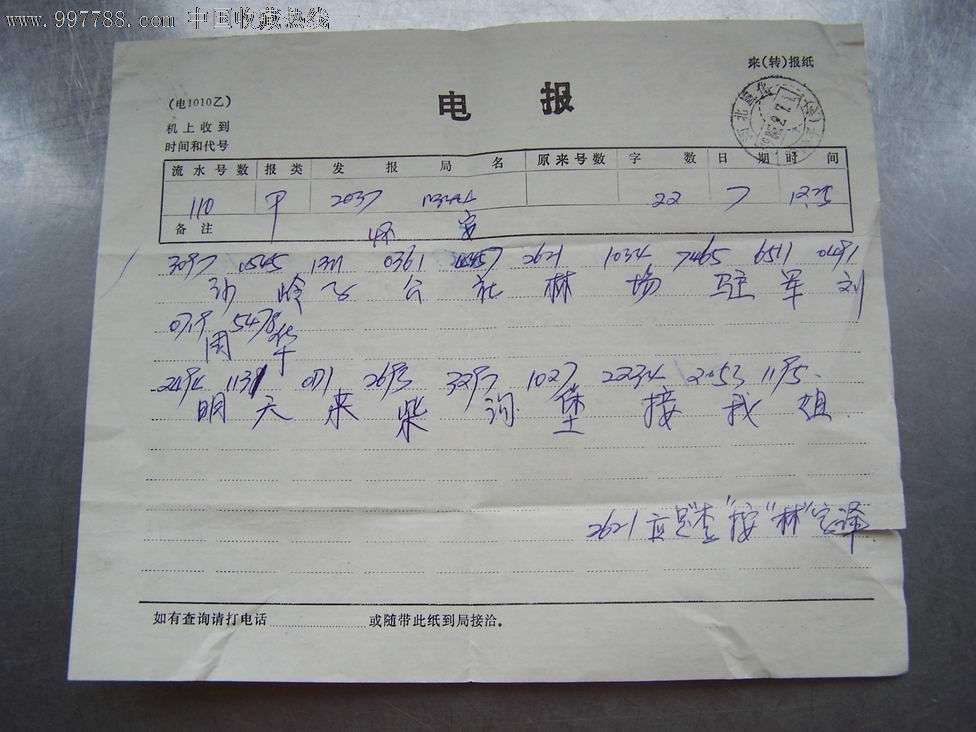 www.997788.com 中国收藏热线
来(转)报纸
(电1010乙)
电 报
机上收到
时间和代号
流水号数 报类 发报局名 原来号数 字数 日期 时间
110 2037 22 7 1225
备注 安
3097 0545 0361 2621 1034 7465 6511 0491
沙岭子公社林场驻军刘
5478
国华
2494 1131 2693 3297 1027 2234 2053 1195
明天来柴沟堡接我姐
2621应是"查"按"林"字译
如有查询请打电话 或随带此纸到局接洽。